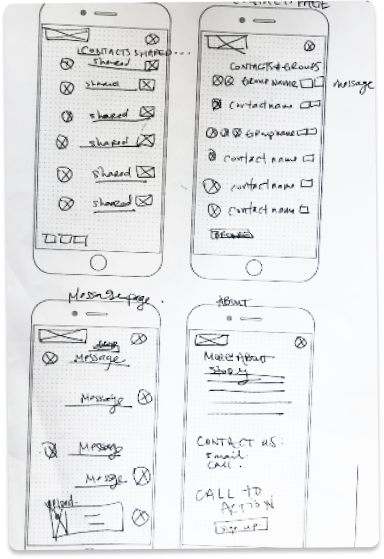 CONTACT PAGE
CONTACTS SHARED...
shared
shared
shared
shared
shared
shared
CONTACTS & GROUPS
GROUP NAME
message
contact name
Group name
contact name
contact name
contact name
Message page.
Message
Message
Message
Message
ABOUT
MORE ABOUT
STORY
CONTACT US:
Email
CALL.
CALL TO
ACTION
Sign up